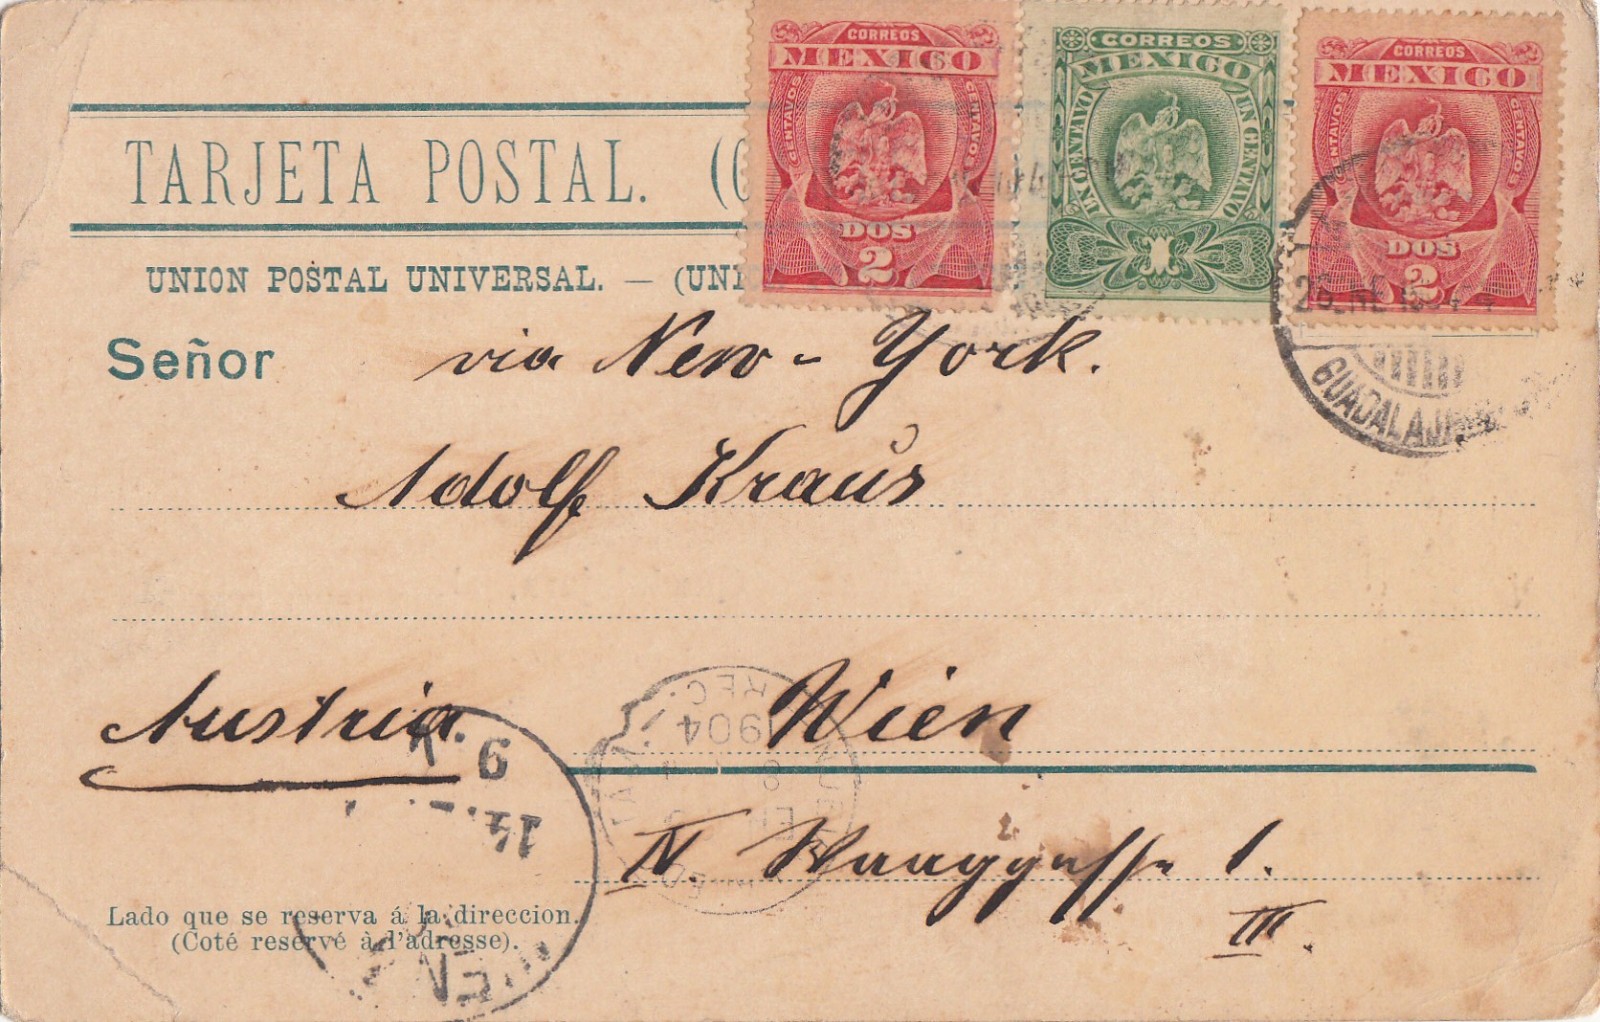 CORREOS
MEXICO
CENTAVOS
CENTAVOS
DOS
2
CORREOS
MEXICO
UN CENTAVO
UN CENTAVO
1
CORREOS
MEXICO
CENTAVOS
CENTAVOS
DOS
2
TARJETA POSTAL. (
UNION POSTAL UNIVERSAL. — (UNI
GUADALAJA
Señor
via New-York.
Adolf Kraus
Austria.
Wien
REC.
1904
9.V
14.
IV. Waaggasse 1.
III.
Lado que se reserva á la direccion.
(Coté reservé à l'adresse).
IEN